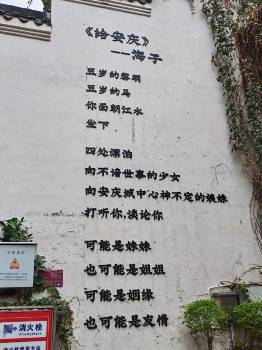 《给安庆》
——海子
五岁的黎明
五岁的马
你面朝江水
坐下
四处漂泊
向不谙世事的少女
向安庆城中心神不定的姨妹
打听你，谈论你
可能是妹妹
也可能是姐姐
可能是姻缘
也可能是友情
消火栓